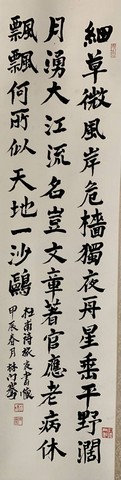 細草微風岸危檣獨夜舟星垂平野濶
月湧大江流名豈文章著官應老病休
飄飄何所似天地一沙鷗
杜甫詩旅夜書懷
甲辰春月林